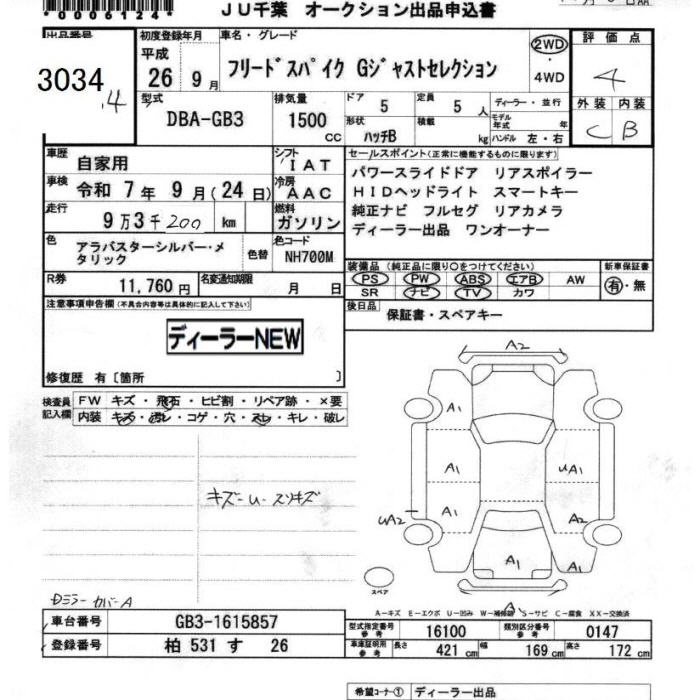 *0006124*
JU千葉 オークション出品申込書
出品番号
3034
.4
初度登録年月
平成
26 9月
車名・グレード
フリードスパイク Gジャストセレクション
2WD
・
4WD
評価点
4
外装 内装
C B
型式
DBA-GB3
排気量
1500
cc
ドア 5
定員 5 人
形状 ハッチB
積載 kg
ディーラー・並行
モデル年式 年
ハンドル 左・右
車歴 自家用
シフト IAT
車検 令和 7年 9月(24日)
冷房 AAC
走行 9万3千200 km
燃料 ガソリン
色 アラバスターシルバー・メタリック
色替
色コード NH700M
R券 11,760円
名変通知期限 月 日
セールスポイント(正常に機能するものに限ります)
パワースライドドア リアスポイラー
HIDヘッドライト スマートキー
純正ナビ フルセグ リアカメラ
ディーラー出品 ワンオーナー
装備品(純正品に限り○をつけてください)
PS PW ABS エアB AW
SR ナビ TV カワ
新車保証書
有・無
後日品 保証書・スペアキー
注意事項申告欄(不具合内容等は具体的に記入して下さい)
ディーラーNEW
修復歴 有〔箇所 〕
検査員記入欄
FW キズ・飛石・ヒビ割・リペア跡・×要
内装 キズ・汚レ・コゲ・穴・スレ・キレ・破レ
キズ-U-スリキズ
カバーA
A2
A1
A1
UA1
A1
UA2
A2
A1
A1
A
スペア
A-キズ E-エクボ U-凹み W-補修跡 S-サビ C-腐食 XX-交換済
車台番号 GB3-1615857
登録番号 柏 531 す 26
型式指定番号 参考 16100
類別区分番号 参考 0147
車庫証明用 参考 長さ 421 cm 幅 169 cm 高さ 172 cm
希望コーナー① ディーラー出品